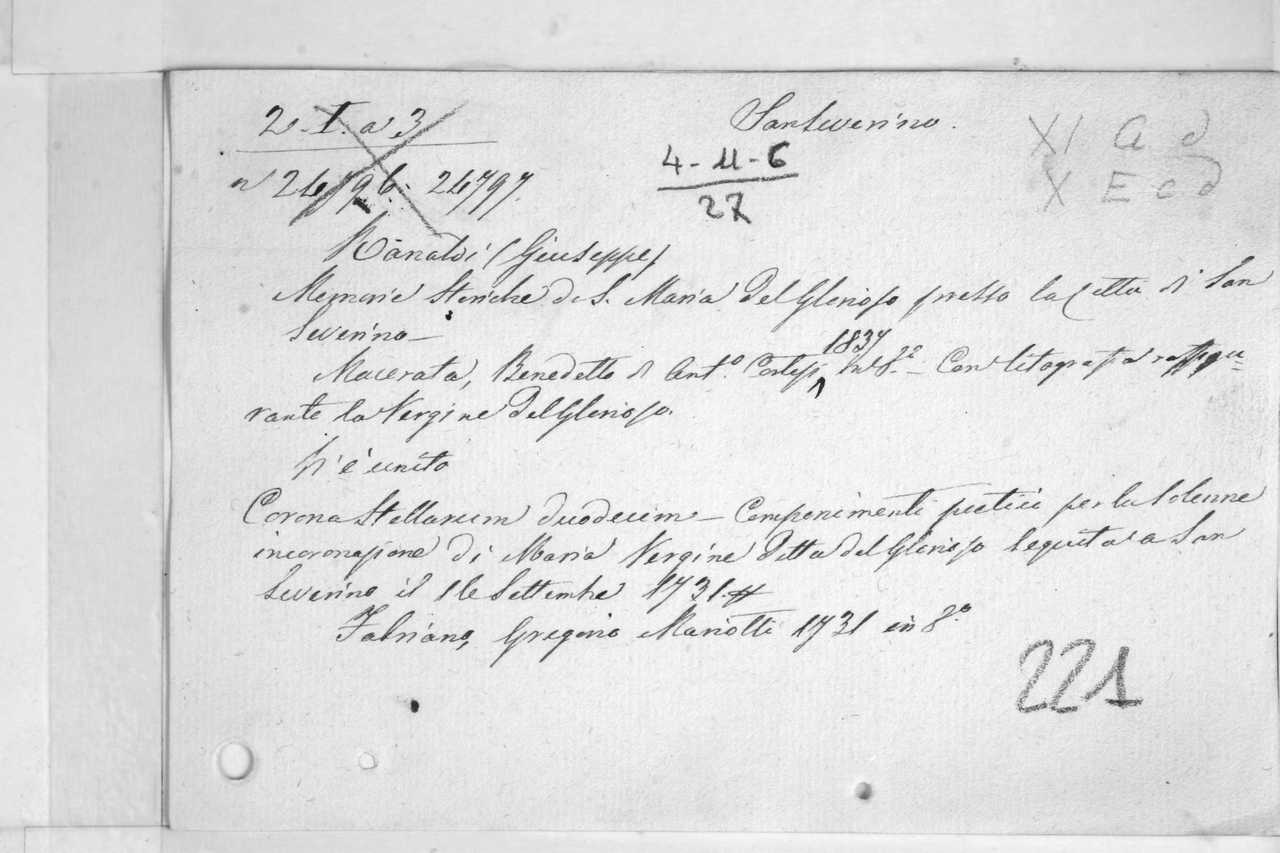 2-I. a 3
Sanseverino.
XI A d
X E c d
4-11-6
27
n° 24796: 24797.
Ranaldi (Giuseppe)
Memorie Storiche di S. Maria Del Glorioso presso la Città di San
Severino-
Macerata, Benedetto di Ant.° Cortesi 1837 in 8.°- Con litografia raffigu=
rante la Vergine Del Glorioso.
Vi è unito
Corona Stellarum duodecim - Componimenti poetici per la Solenne
incoronazione di Maria Vergine Detta del Glorioso seguita a San
Severino il Settembre 1731.
Fabriano, Gregorio Mariotti 1731 in 8.°
221